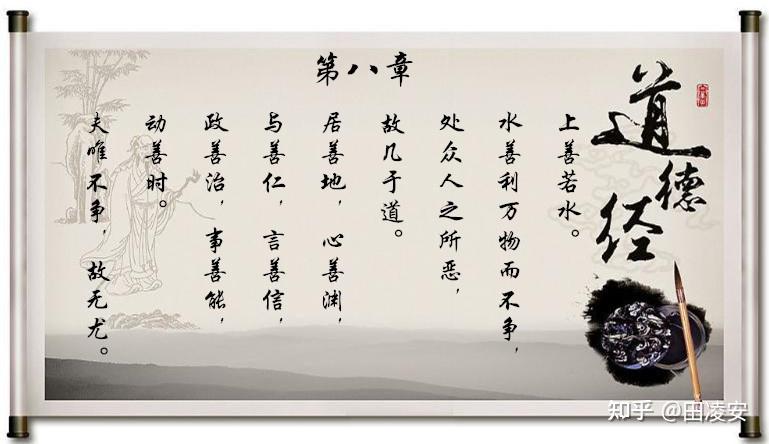 道德经
第八章
上善若水。
水善利万物而不争，
处众人之所恶，
故几于道。
居善地，心善渊，
与善仁，言善信，
政善治，事善能，
动善时。
夫唯不争，故无尤。
知乎 @田凌安